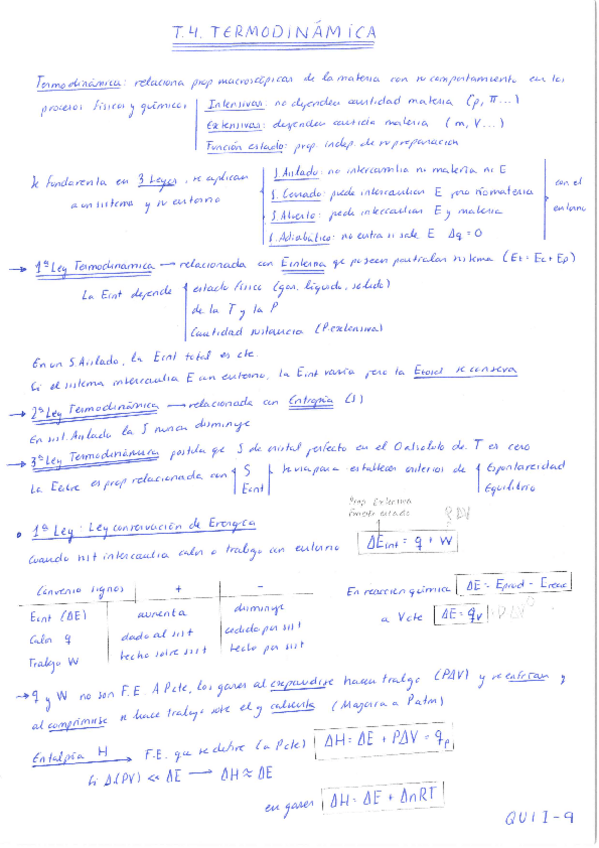 T.4. TERMODINÁMICA
Termodinámica: relaciona prop macroscópicas de la materia con su comportamiento en los
procesos físicos y químicos
Intensivas: no dependen cantidad materia (ρ, π...)
Extensivas: dependen cantidad materia (m, V...)
Función estado: prop. indep. de su preparación
Se fundamenta en 3 Leyes, se aplican
a un sistema y su entorno
S. Aislado: no intercambia ni materia ni E
S. Cerrado: puede intercambiar E pero no materia
S. Abierto: puede intercambiar E y materia
S. Adiabático: no entra ni sale E Δq = 0
con el
entorno
→ 1ª Ley Termodinámica → relacionada con E interna que poseen partículas sistema (Et = Ec + Ep)
La Eint depende
estado físico (gas, líquido, sólido)
de la T y la P
Cantidad sustancia (P. extensiva)
En un S. Aislado, la Eint total es cte.
Si el sistema intercambia E con entorno, la Eint varía pero la Etotal se conserva
→ 2ª Ley Termodinámica → relacionada con Entropía (S)
En sist. Aislado la S nunca disminuye
→ 3ª Ley Termodinámica postula que S de cristal perfecto en el 0 absoluto de T es cero
La E libre es prop relacionada con
S
Eint
sirve para establecer criterios de
Espontaneidad
Equilibrio
• 1ª Ley. Ley conservación de Energía
Prop Extensiva
PΔV
Cuando sist intercambia calor o trabajo con entorno ΔEint = q + W
Convenio signos + -
Eint (ΔE) aumenta disminuye
Calor q dado al sist cedido por sist
Trabajo W hecho sobre sist hecho por sist
En reacción química ΔE = Eprod - Ereac
a V cte ΔE = qv
→ q y W no son F.E. A Pcte, los gases al expandirse hacen trabajo (PΔV) y se enfrían y
al comprimirse se hace trabajo sobre el y calienta (Mayoría a Patm)
Entalpía H → F.E. que se define (a Pcte) ΔH = ΔE + PΔV = qp
Si Δ(PV) << ΔE → ΔH ≈ ΔE
en gases ΔH = ΔE + ΔnRT
QUI I-9